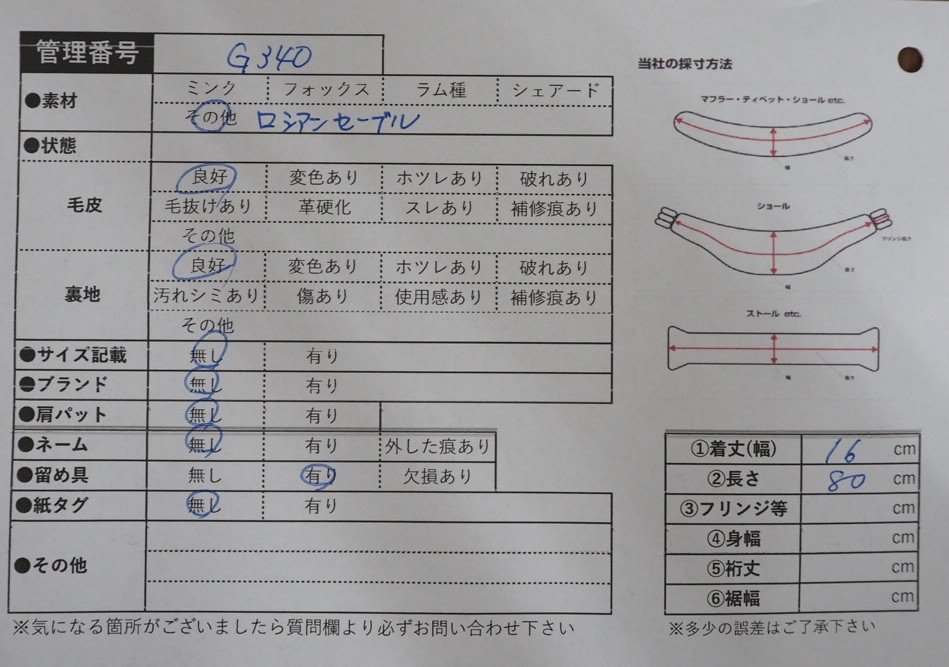 管理番号 G340
●素材 ミンク フォックス ラム種 シェアード
その他 ロシアンセーブル
●状態
毛皮 良好 変色あり ホツレあり 破れあり
毛抜けあり 革硬化 スレあり 補修痕あり
その他
裏地 良好 変色あり ホツレあり 破れあり
汚れシミあり 傷あり 使用感あり 補修痕あり
その他
●サイズ記載 無し 有り
●ブランド 無し 有り
●肩パット 無し 有り
●ネーム 無し 有り 外した痕あり
●留め具 無し 有り 欠損あり
●紙タグ 無し 有り
●その他
※気になる箇所がございましたら質問欄より必ずお問い合わせ下さい
当社の採寸方法
マフラー・ティペット・ショール etc.
長さ
幅
ショール
フリンジ長さ
長さ
幅
ストール etc.
幅 長さ
①着丈(幅) 16 cm
②長さ 80 cm
③フリンジ等 cm
④身幅 cm
⑤裄丈 cm
⑥裾幅 cm
※多少の誤差はご了承下さい